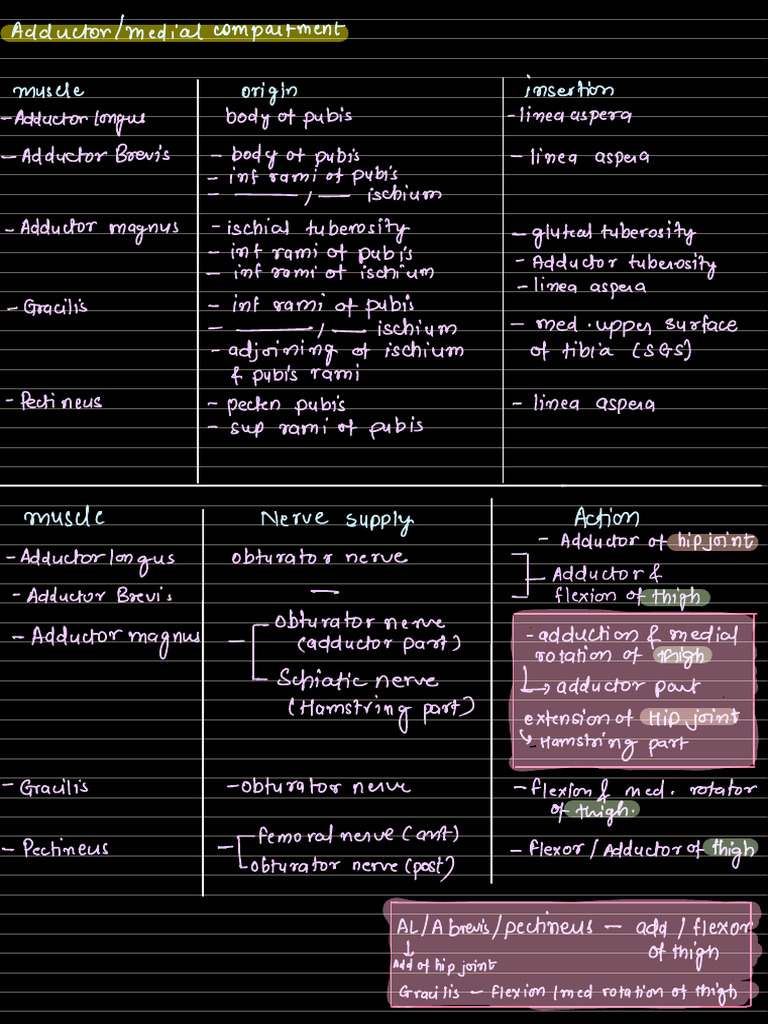 Adductor/medial compartment
muscle origin insertion
-Adductor longus body of pubis -linea aspera
-Adductor Brevis - body of pubis - linea aspera
- inf rami of pubis
- ——— / —— ischium
- Adductor magnus -ischial tuberosity - gluteal tuberosity
- inf rami of pubis - Adductor tuberosity
- inf rami of ischium - linea aspera
- Gracilis - inf rami of pubis
- ——— / —— ischium - med. upper surface
- adjoining of ischium of tibia (SGS)
& pubis rami
- Pectineus - pecten pubis - linea aspera
- sup rami of pubis
muscle Nerve supply Action
- Adductor of hip joint
- Adductor longus obturator nerve
- Adductor &
- Adductor Brevis — flexion of thigh
- Adductor magnus - Obturator nerve -adduction & medial
(adductor part) rotation of thigh
Schiatic nerve ↳ adductor part
(Hamstring part) extension of Hip joint
↳ Hamstring part
- Gracilis -obturator nerve -flexion & med. rotator
of thigh.
- Pectineus - femoral nerve (ant) - flexor / Adductor of thigh
obturator nerve (post)
AL/A brevis/pectineus - add / flexor
↓ of thigh
Add of hip joint
Gracilis - flexion /med rotation of thigh